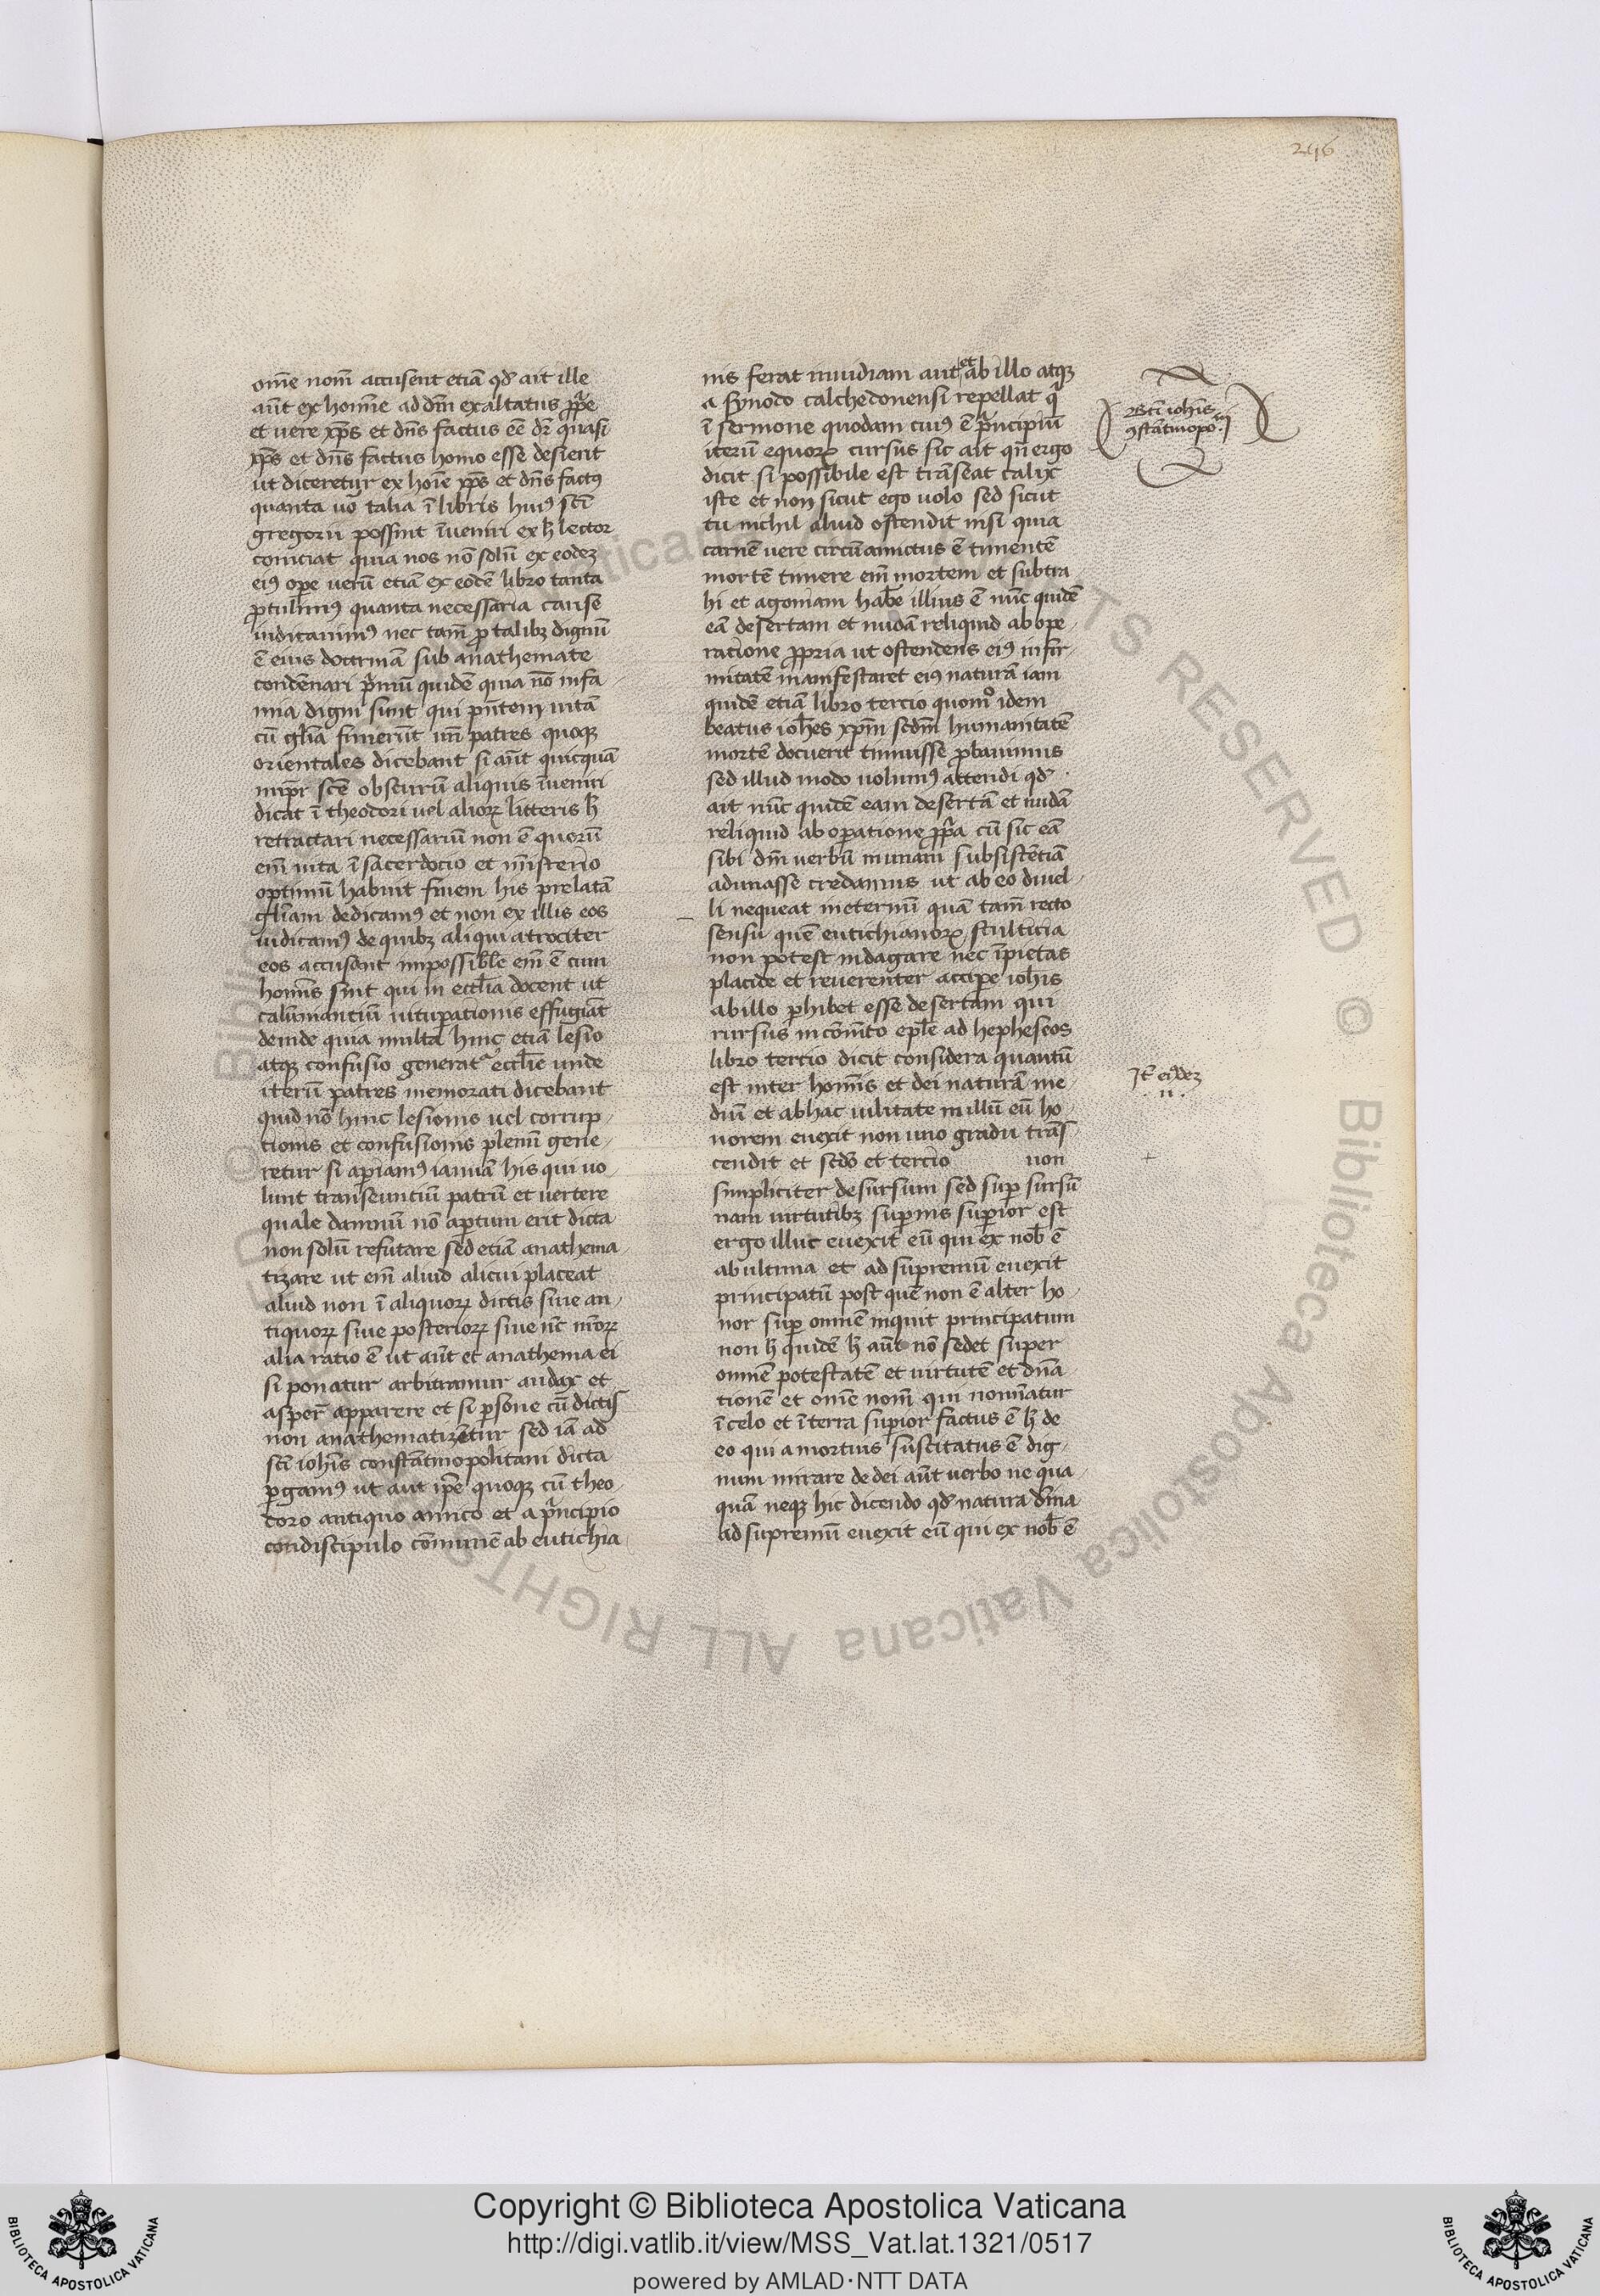 296
om̄e nom̄ accusent etiā qd̓ ait ille
aūt ex homīe ad dm̄ exaltatus ꝓp̄e
et uere xp̄s et dn̄s factus eē dr̄ quasi
xp̄s et dn̄s factus homo esse desierit
ut diceretur ex hoīe xp̄s et dn̄s factꝰ
quanta uō talia ī libris huiꝰ scī
gregorii possint īueniri ex h̄ lector
coniciat quia nos nō solū ex eodez
eiꝰ oꝑe uerū etiā ex eodē libro tanta
ꝓtulimꝰ quanta necessaria cause
iudicauimꝰ nec tam̄ ꝓ talibꝫ dignū
ē eius doctrinā sub anathemate
condēnari pͥmū quidē quia nō infa
mia digni sunt qui pn̄tem uitā
cū gl̄ia finierūt un̄ patres quoqꝫ
orientales dicebant si aūt quicquā
nup̄ scē obscurū aliquis īueniri
dicat ī theodori uel alioꝝ litteris h̄
retractari necessariū non ē quorū
em̄ uita ī sacerdocio et mīsterio
optimū habuit finem his prelatā
gl̄iam dedicamꝰ et non ex illis eos
iudicamꝰ de quibꝫ aliqui atrociter
eos accusant impossibīle em̄ ē cum
homīs sint qui in eccl̄ia docent ut
calūmantiū uituꝑationis effugiāt
deinde quia multa hinc etiā lesio
atqꝫ confusio generatᷣ eccl̄ie unde
iterū patres memorati dicebant
quid nō hinc lesionis uel corrup
tionis et confusionis plenū gene
retur si aꝑiamꝰ ianuā his qui uo
lunt transeuntiū patrū et uertere
quale damnū nō aꝑtum erit dicta
non solū refutare sed etiā anathema
tizare ut em̄ aliud alicui placeat
aliud non ī aliquoꝝ dictis siue an
tiquoꝝ siue posterioꝝ siue nc̄ nr̄oꝝ
alia ratio ē ut aūt et anathema ei
si ponatur arbitramur audax et
asper̄ apparere et si ꝑsone cū dictis
non anathematizētur sed iā ad
scī ioh̄is constātinopolitani dicta
ꝑgamꝰ ut aut ip̄e quoqꝫ cū theo
doro antiquo amico et a pͥncipio
condiscipulo cōmunē ab eutichia
nis ferat inuidiam aut et ab illo atqꝫ
a synodo calchedonensi repellat q
ī sermone quodam cuiꝰ ē pͥncipiū
iterū equoꝝ cursus sic ait qn̄ ergo
dicit si possibile est trāseat calix
iste et non sicut ego uolo sed sicut
tu nichil aliud ostendit nisi quia
carnē uere circūamictus ē timentē
mortē timere em̄ mortem et subtra
hi et agoniam habē illius ē nūc quidē
eā desertam et nudā reliquid ab oꝑe
ratione ꝓpria ut ostendens eiꝰ infir
mitatē manifestaret eiꝰ naturā iam
quidē etiā libro tercio quomͦ idem
beatus ioh̄es xp̄m scdm̄ humanitatē
mortē docuerit timuisse ꝓbauimus
sed illud modo uolumꝰ attendi qd̓
ait nūc quidē eam desertā et nudā
reliquid ab oꝑatione ꝓp̄a cū sic eā
sibi dm̄ uerbū in unam subsistētiā
adunasse credamus ut ab eo diuel
li nequeat in eternū quā tam̄ recto
sensu quē eutichianoꝝ stulticia
non potest indagare nec īpietas
placide et reuerenter acciꝑe ioh̄is
ab illo ꝑhibet esse desertam qui
rursus in cōm̄to epl̄e ad hepheseos
libro tercio dicit considera quantū
est inter homīs et dei naturā me
diū et ab hac uilitate in illū eū ho
norem euexit non uno gradu trās
cendit et scdō et tercio non
simpliciter desursum sed suꝑ sursū
nam uirtutibꝫ suꝑnis suꝑior est
ergo illuc euexit eū qui ex nob̄ ē
ab ultima et ad supremū euexit
principatū post quē non ē alter ho
nor suꝑ omnē inquit principatum
non h̄ quidē h̄ aūt nō sedet super
omnē potestatē et uirtutē et dn̄a
tionē et om̄e nom̄ qui nomīatur
ī celo et ī terra suꝑior factus ē h̄ de
eo qui a mortuis suscitatus ē dig
num mirare de dei aūt uerbo ne qua
quā neqꝫ hic dicendo qd̓ natura dīna
ad supremū euexit eū qui ex nob̄ ē
Btī ioh̄is
ꝯstātinopo.
It̄ eiꝰdez
.ii.
+
Copyright © Biblioteca Apostolica Vaticana
http://digi.vatlib.it/view/MSS_Vat.lat.1321/0517
powered by AMLAD·NTT DATA